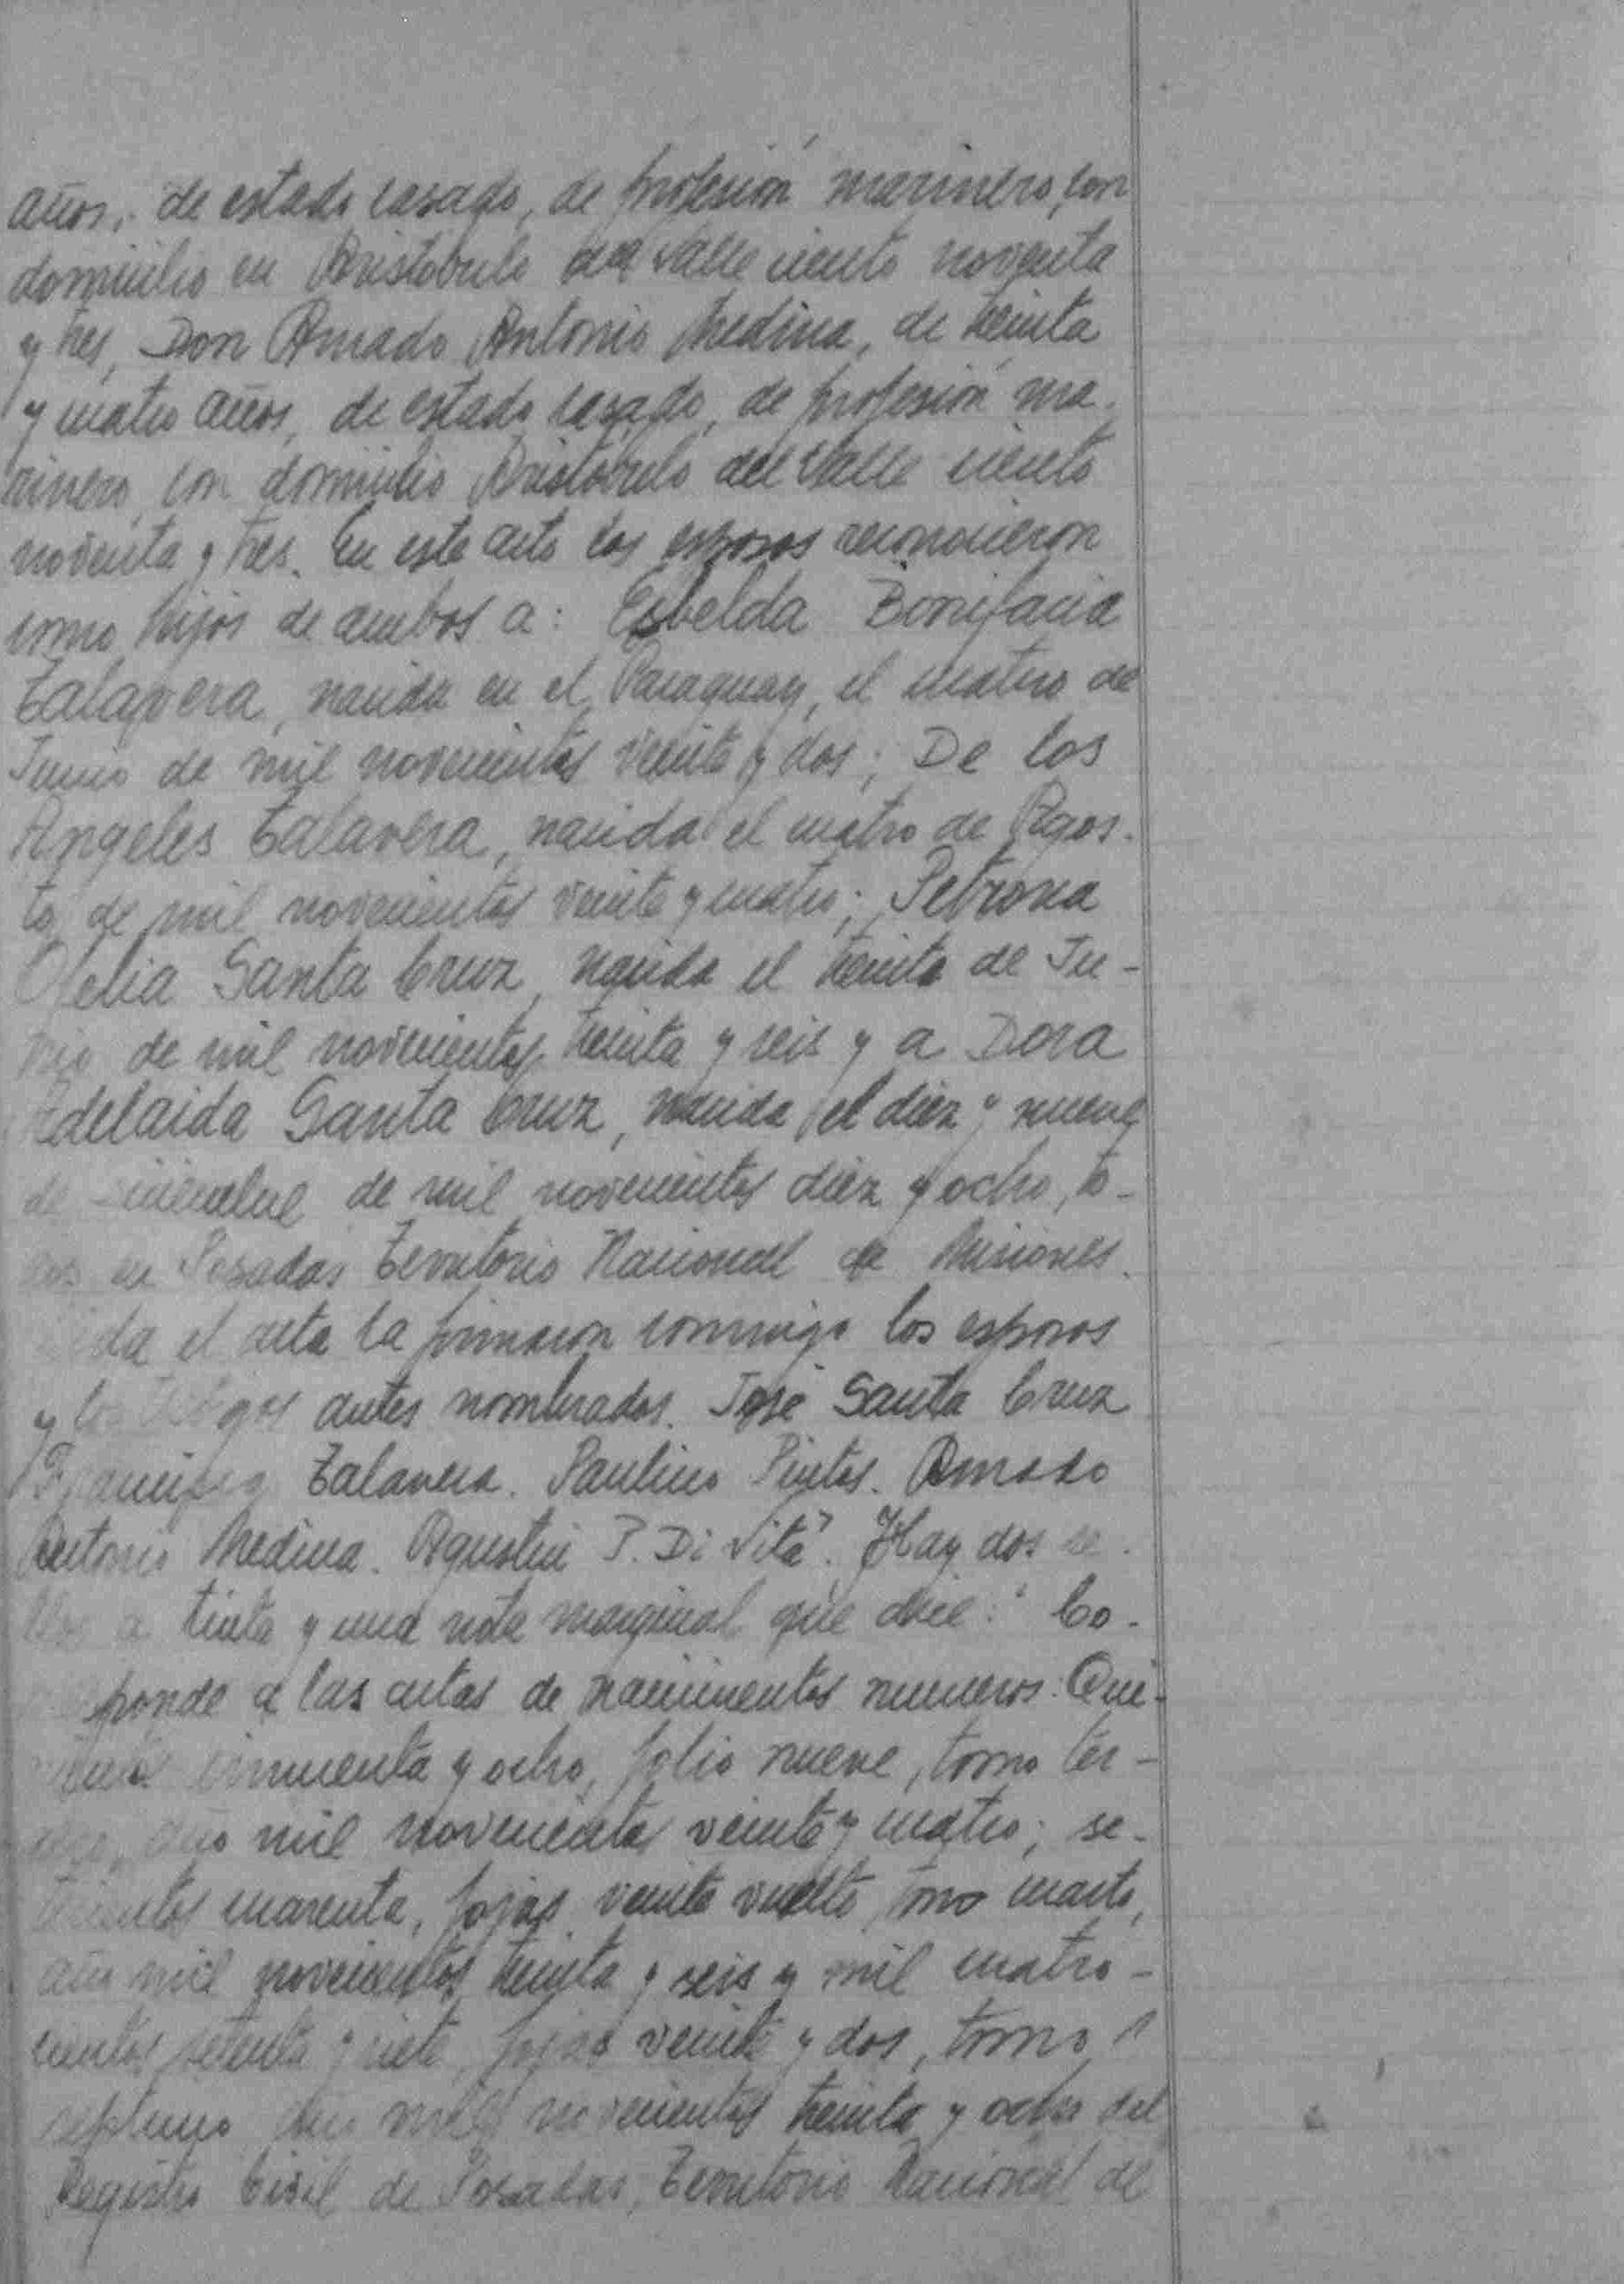 años, de estado casado, de profesión marinero, con
domicilio en Aristobulo del Valle ciento noventa
y tres, Don Amado Antonio Medina, de treinta
y cuatro años, de estado casado, de profesión ma-
rinero, con domicilio Aristobulo del Valle ciento
noventa y tres. En este acto los esposos reconocieron
como hijos de ambos a: Esbelda Bonifacia
Talavera, nacida en el Paraguay, el cuatro de
Junio de mil novecientos veinte y dos; De los
Angeles Talavera, nacida el cuatro de Agos-
to de mil novecientos veinte y cuatro; Petrona
Ofelia Santa Cruz, nacida el treinta de Ju-
nio de mil novecientos treinta y seis y a Dora
Adelaida Santa Cruz, nacida el diez y nueve
de de mil novecientos diez y ocho, to-
dos en Posadas Territorio Nacional de Misiones.
el acta la firmaron conmigo los esposos
y los testigos antes nombrados. José Santa Cruz
Talavera. Paulino Pintos. Amado
Antonio Medina. Agustin P. Di Vita". Hay dos se-
llos a tinta y una nota marginal que dice: "Co-
rresponde a las actas de nacimientos numeros: Qui-
nientos cincuenta y ocho, folio nueve, tomo ter-
cero, año mil novecientos veinte y cuatro; se-
tecientos cuarenta, fojas veinte vuelto, tomo cuarto,
año mil novecientos treinta y seis y mil cuatro-
cientos setenta y siete, fojas veinte y dos, tomo
septimo año mil novecientos treinta y ocho del
Registro Civil de Posadas, Territorio Nacional de